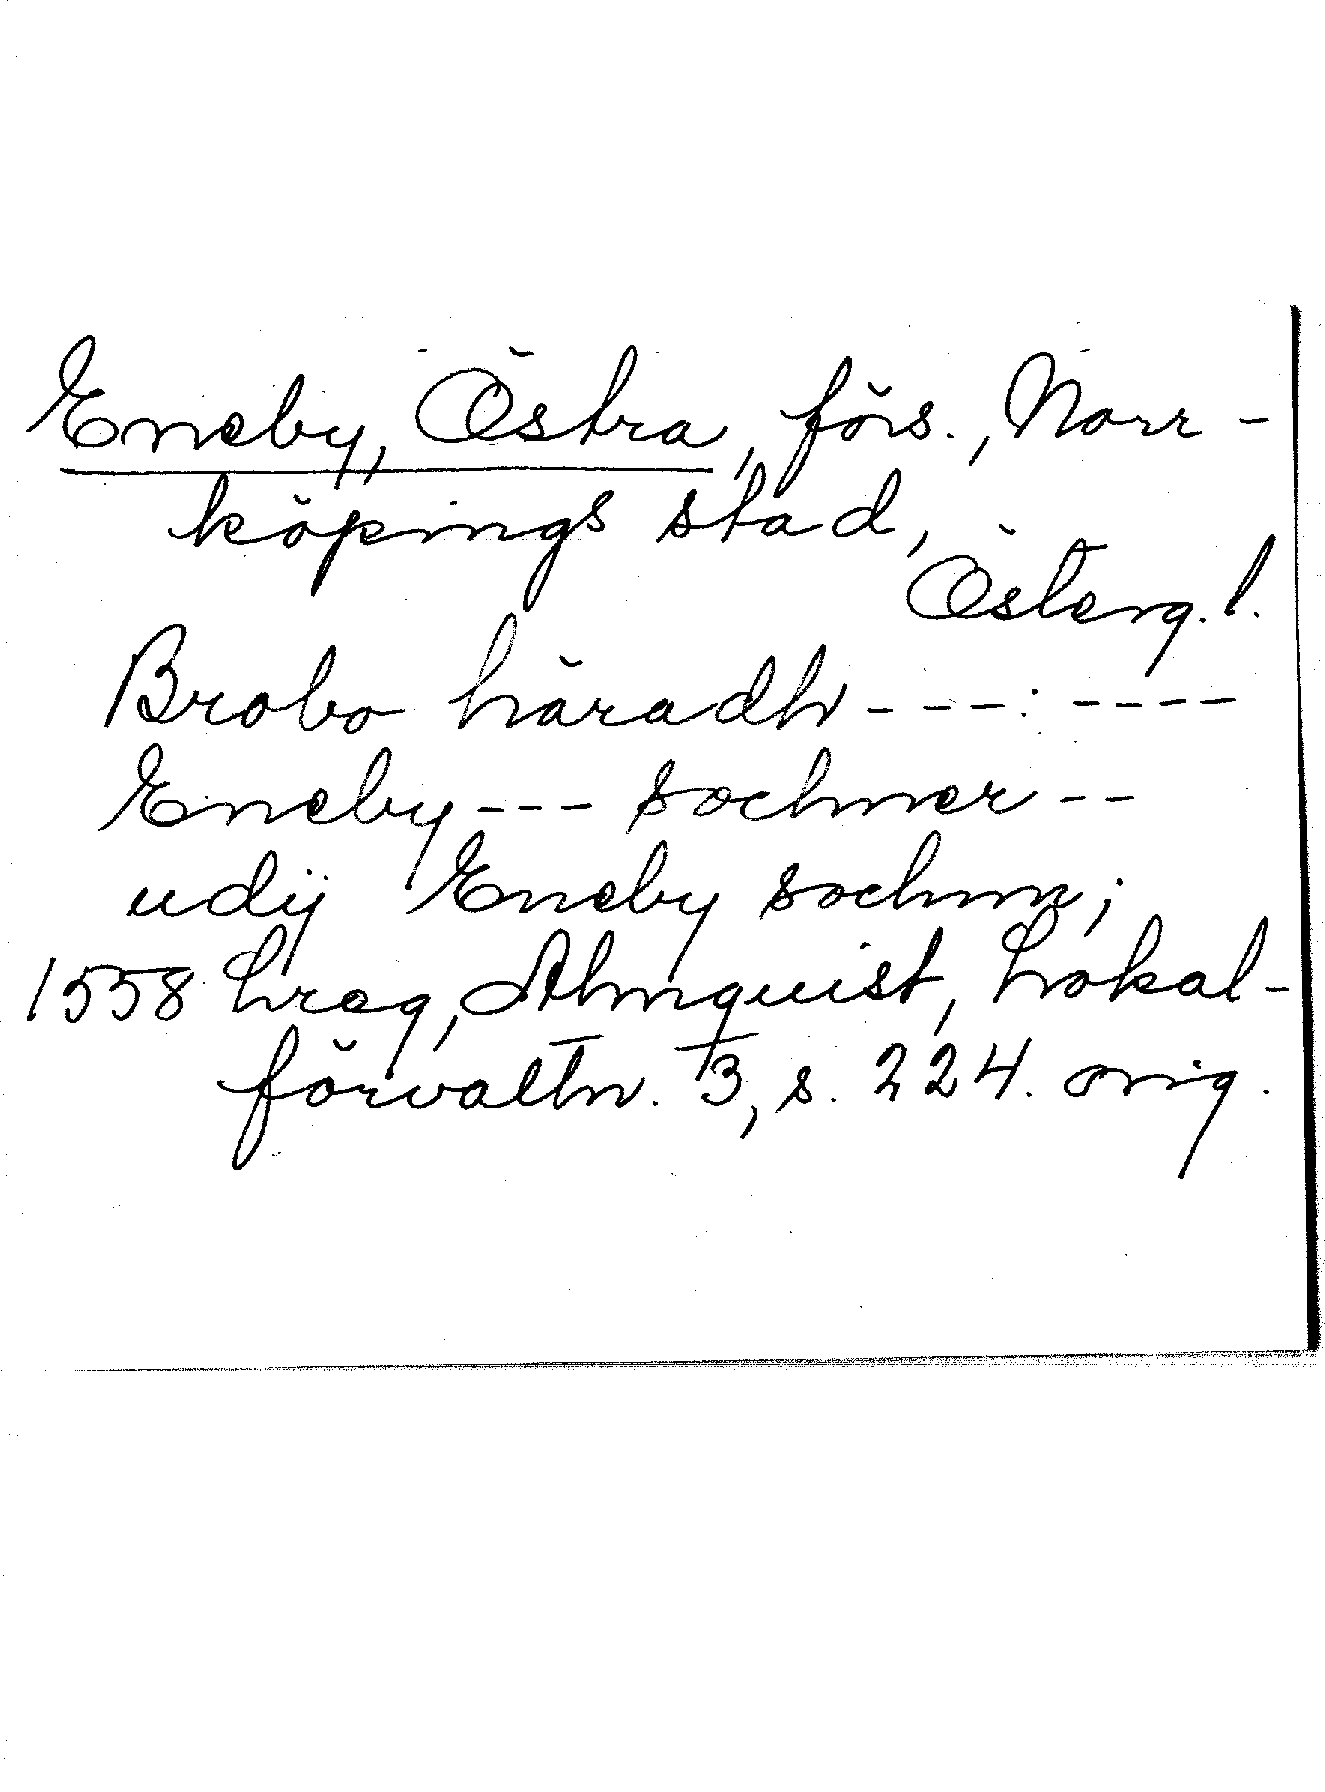 Eneby, Östra, förs., Norr-
köpings stad,
Österg. l.
Brobo häradh - - - : - - - -
Eneby - - - sochner - -
udij Eneby sochnn;
1558 Lreg, Almquist, Lokal-
förvaltn. I 3, s. 224. orig.